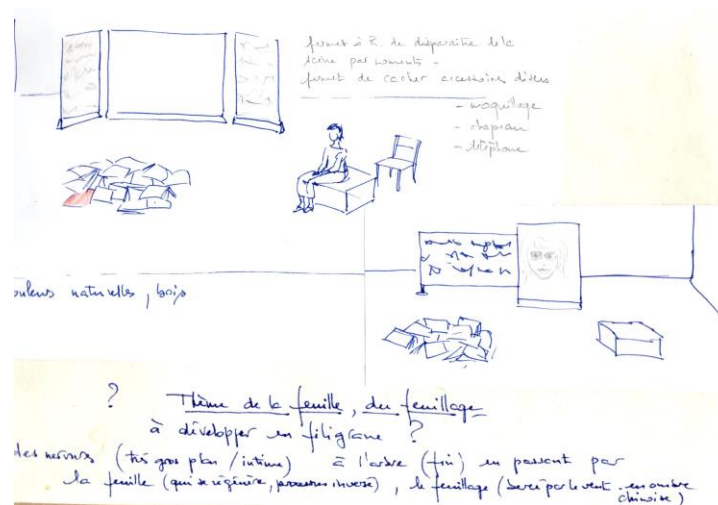 permet à R. de disparaître de la
scène par moments -
permet de cacher accessoires divers
- maquillage
- chapeau
- téléphone
couleurs naturelles, bois
? Thème de la feuille, du feuillage
à développer en filigrane ?
des nervures (très gros plan / intime) à l'arbre (fin) en passant par
la feuille (qui se régénère, processus inversé), le feuillage (bercé par le vent en ombre
chinoise)